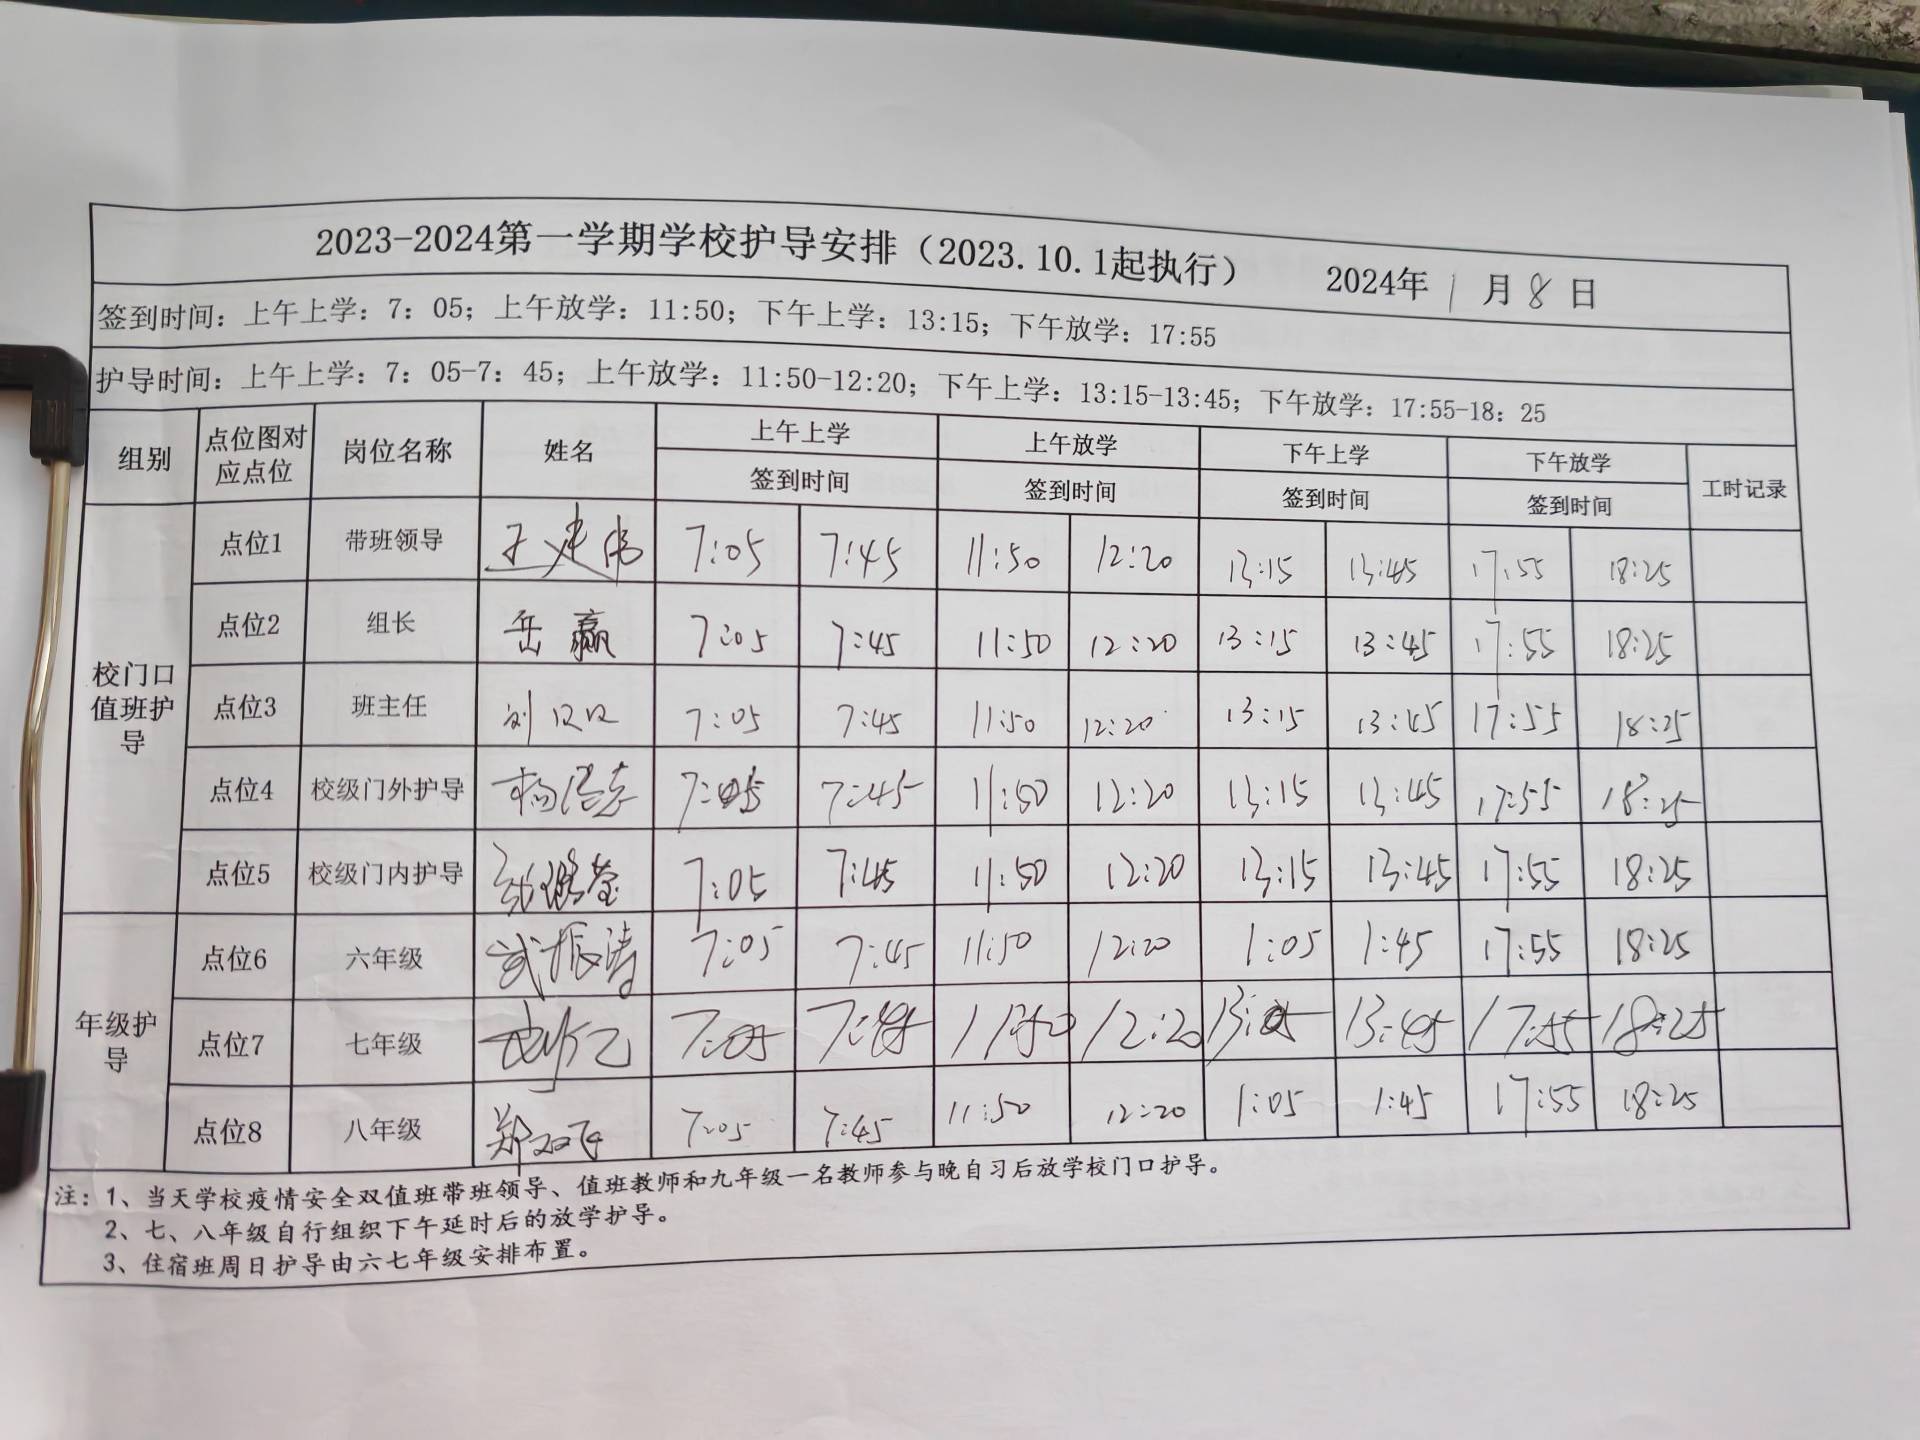 2023-2024第一学期学校护导安排（2023.10.1起执行） 2024年 1 月 8 日
签到时间：上午上学：7：05；上午放学：11:50；下午上学：13:15；下午放学：17:55
护导时间：上午上学：7：05-7：45；上午放学：11:50-12:20；下午上学：13:15-13:45；下午放学：17:55-18：25
组别 点位图对应点位 岗位名称 姓名 上午上学 上午放学 下午上学 下午放学 工时记录
签到时间 签到时间 签到时间 签到时间
校门口值班护导
点位1 带班领导 王建伟 7:05 7:45 11:50 12:20 13:15 13:45 17:55 18:25
点位2 组长 岳赢 7:05 7:45 11:50 12:20 13:15 13:45 17:55 18:25
点位3 班主任 刘 7:05 7:45 11:50 12:20 13:15 13:45 17:55 18:25
点位4 校级门外护导 杨 7:05 7:45 11:50 12:20 13:15 13:45 17:55 18:25
点位5 校级门内护导 7:05 7:45 11:50 12:20 13:15 13:45 17:55 18:25
年级护导
点位6 六年级 武振涛 7:05 7:45 11:50 12:20 1:05 1:45 17:55 18:25
点位7 七年级 7:05 7:45 11:50 12:20 13:05 13:45 17:55 18:25
点位8 八年级 郑双飞 7:05 7:45 11:50 12:20 1:05 1:45 17:55 18:25
注：1、当天学校疫情安全双值班带班领导、值班教师和九年级一名教师参与晚自习后放学校门口护导。
2、七、八年级自行组织下午延时后的放学护导。
3、住宿班周日护导由六七年级安排布置。